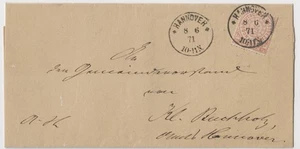 HANNOVER
8 6
71
10-11V.
HANNOVER
8 6
71
An
den Gemeindevorstand
von
Kl. Buchholz
Amt Hannover